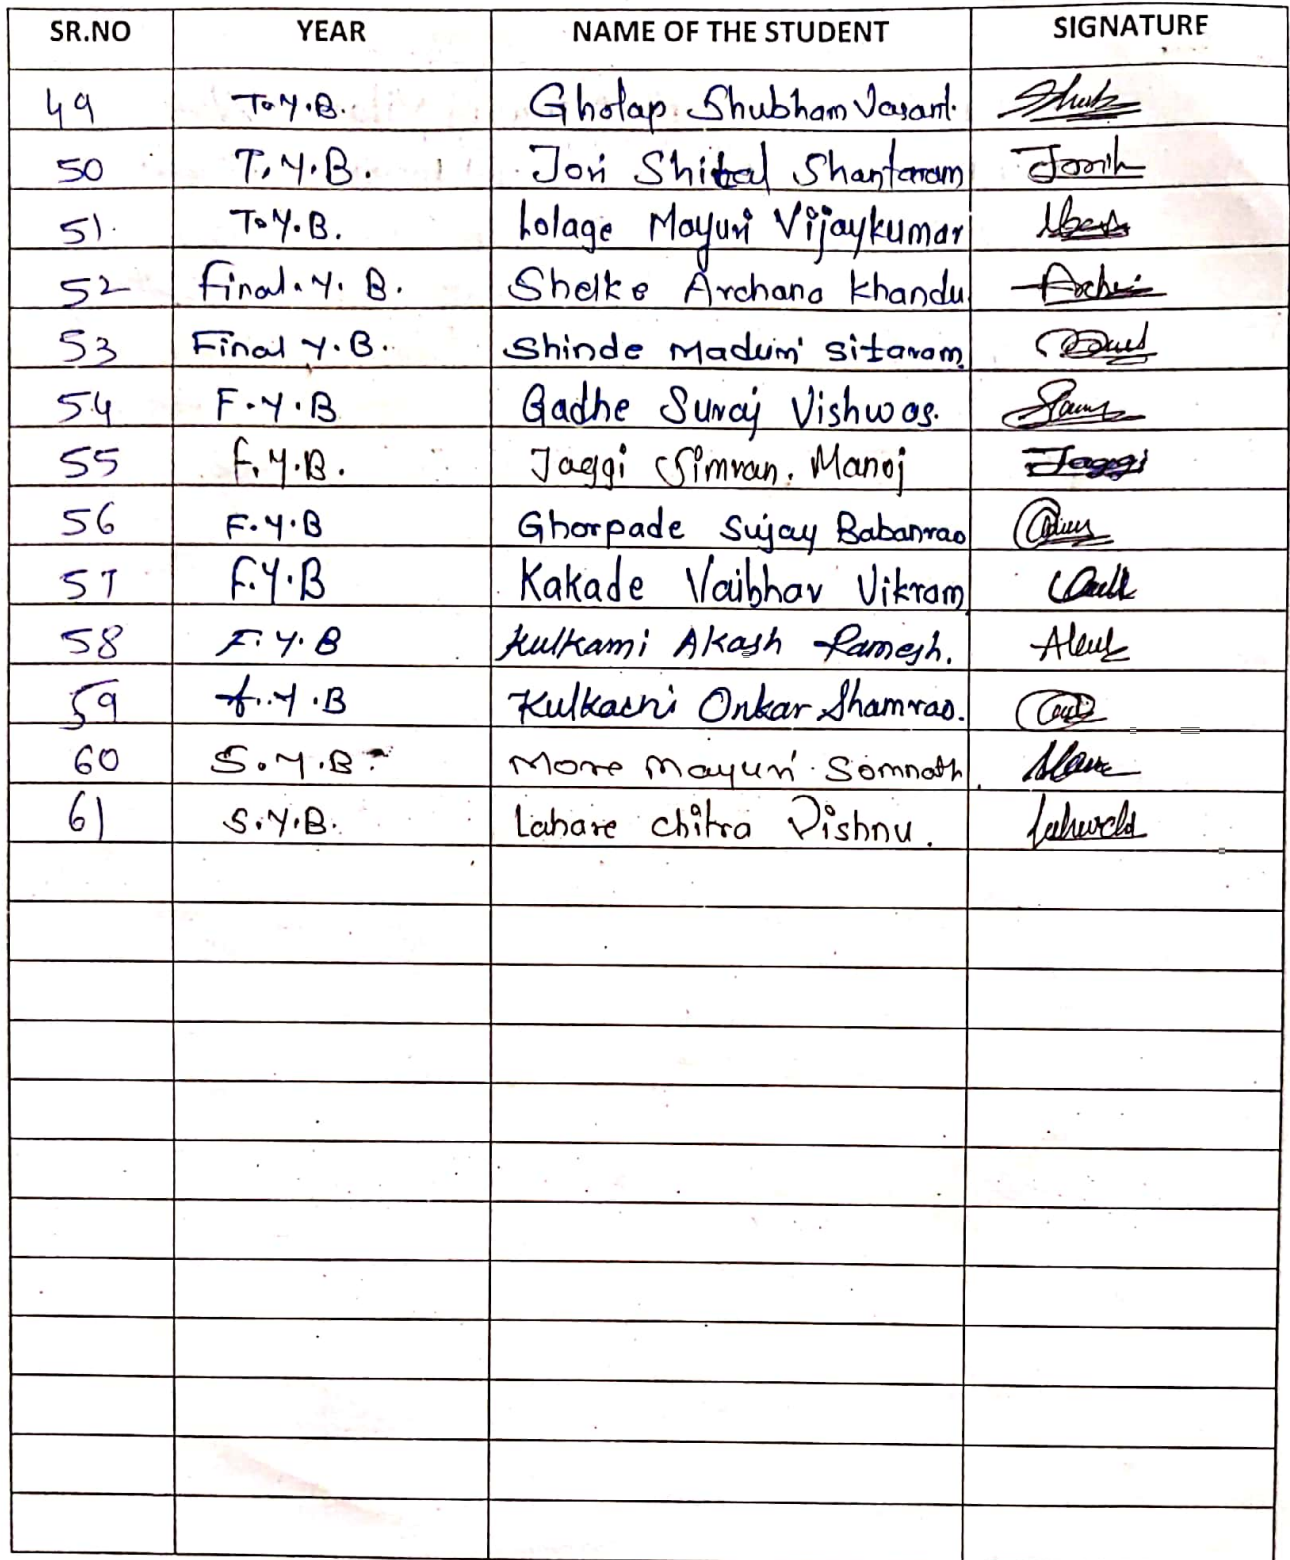 SR.NO YEAR NAME OF THE STUDENT SIGNATURE
49 T.Y.B. Gholap Shubham Vasant.
50 T.Y.B. Jori Shital Shantaram
51. T.Y.B. Lolage Mayuri Vijaykumar
52 Final.Y.B. Shelke Archana Khandu
53 Final Y.B. Shinde Maduri Sitaram
54 F.Y.B Gadhe Suraj Vishwas.
55 F.Y.B. Jaggi Simran. Manoj Jaggi
56 F.Y.B Ghorpade Sujay Babanrao
57 F.Y.B Kakade Vaibhav Vikram
58 F.Y.B Kulkarni Akash Ramesh.
59 f.Y.B Kulkarni Onkar Shamrao.
60 S.Y.B. More Mayuri Somnath
61 S.Y.B. Lahare Chitra Vishnu.